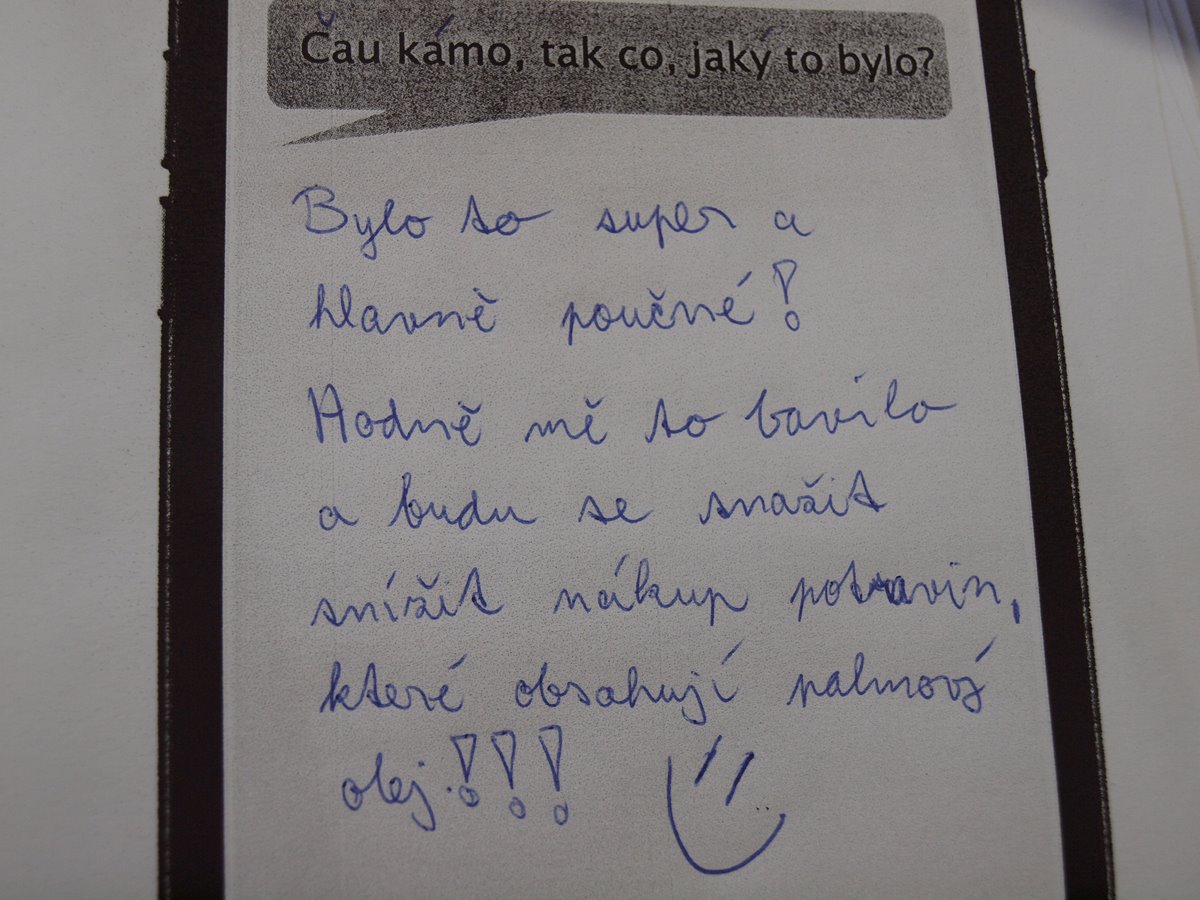 Čau kámo, tak co, jaký to bylo?
Bylo to super a
hlavně poučné!
Hodně mě to bavilo
a budu se snažit
snížit nákup potravin,
které obsahují palmový
olej.!!!